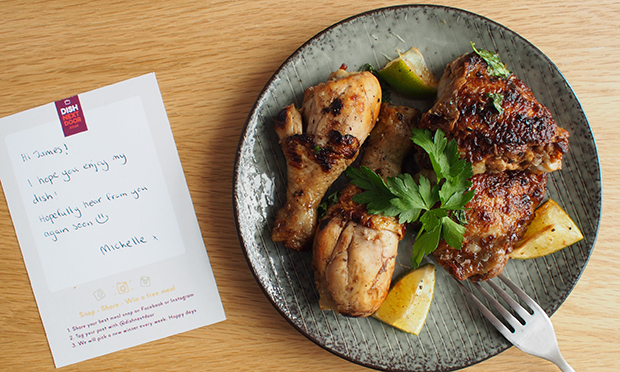 DISH
NEXT
DOOR
Hi James!
I hope you enjoy my
dish!
Hopefully hear from you
again soon
Michelle x
Snap - Share - Win a free meal
1. Share your best meal snap on Facebook or Instagram
2. Tag your post with @dishnextdoor
3. We will pick a new winner every week. Happy days